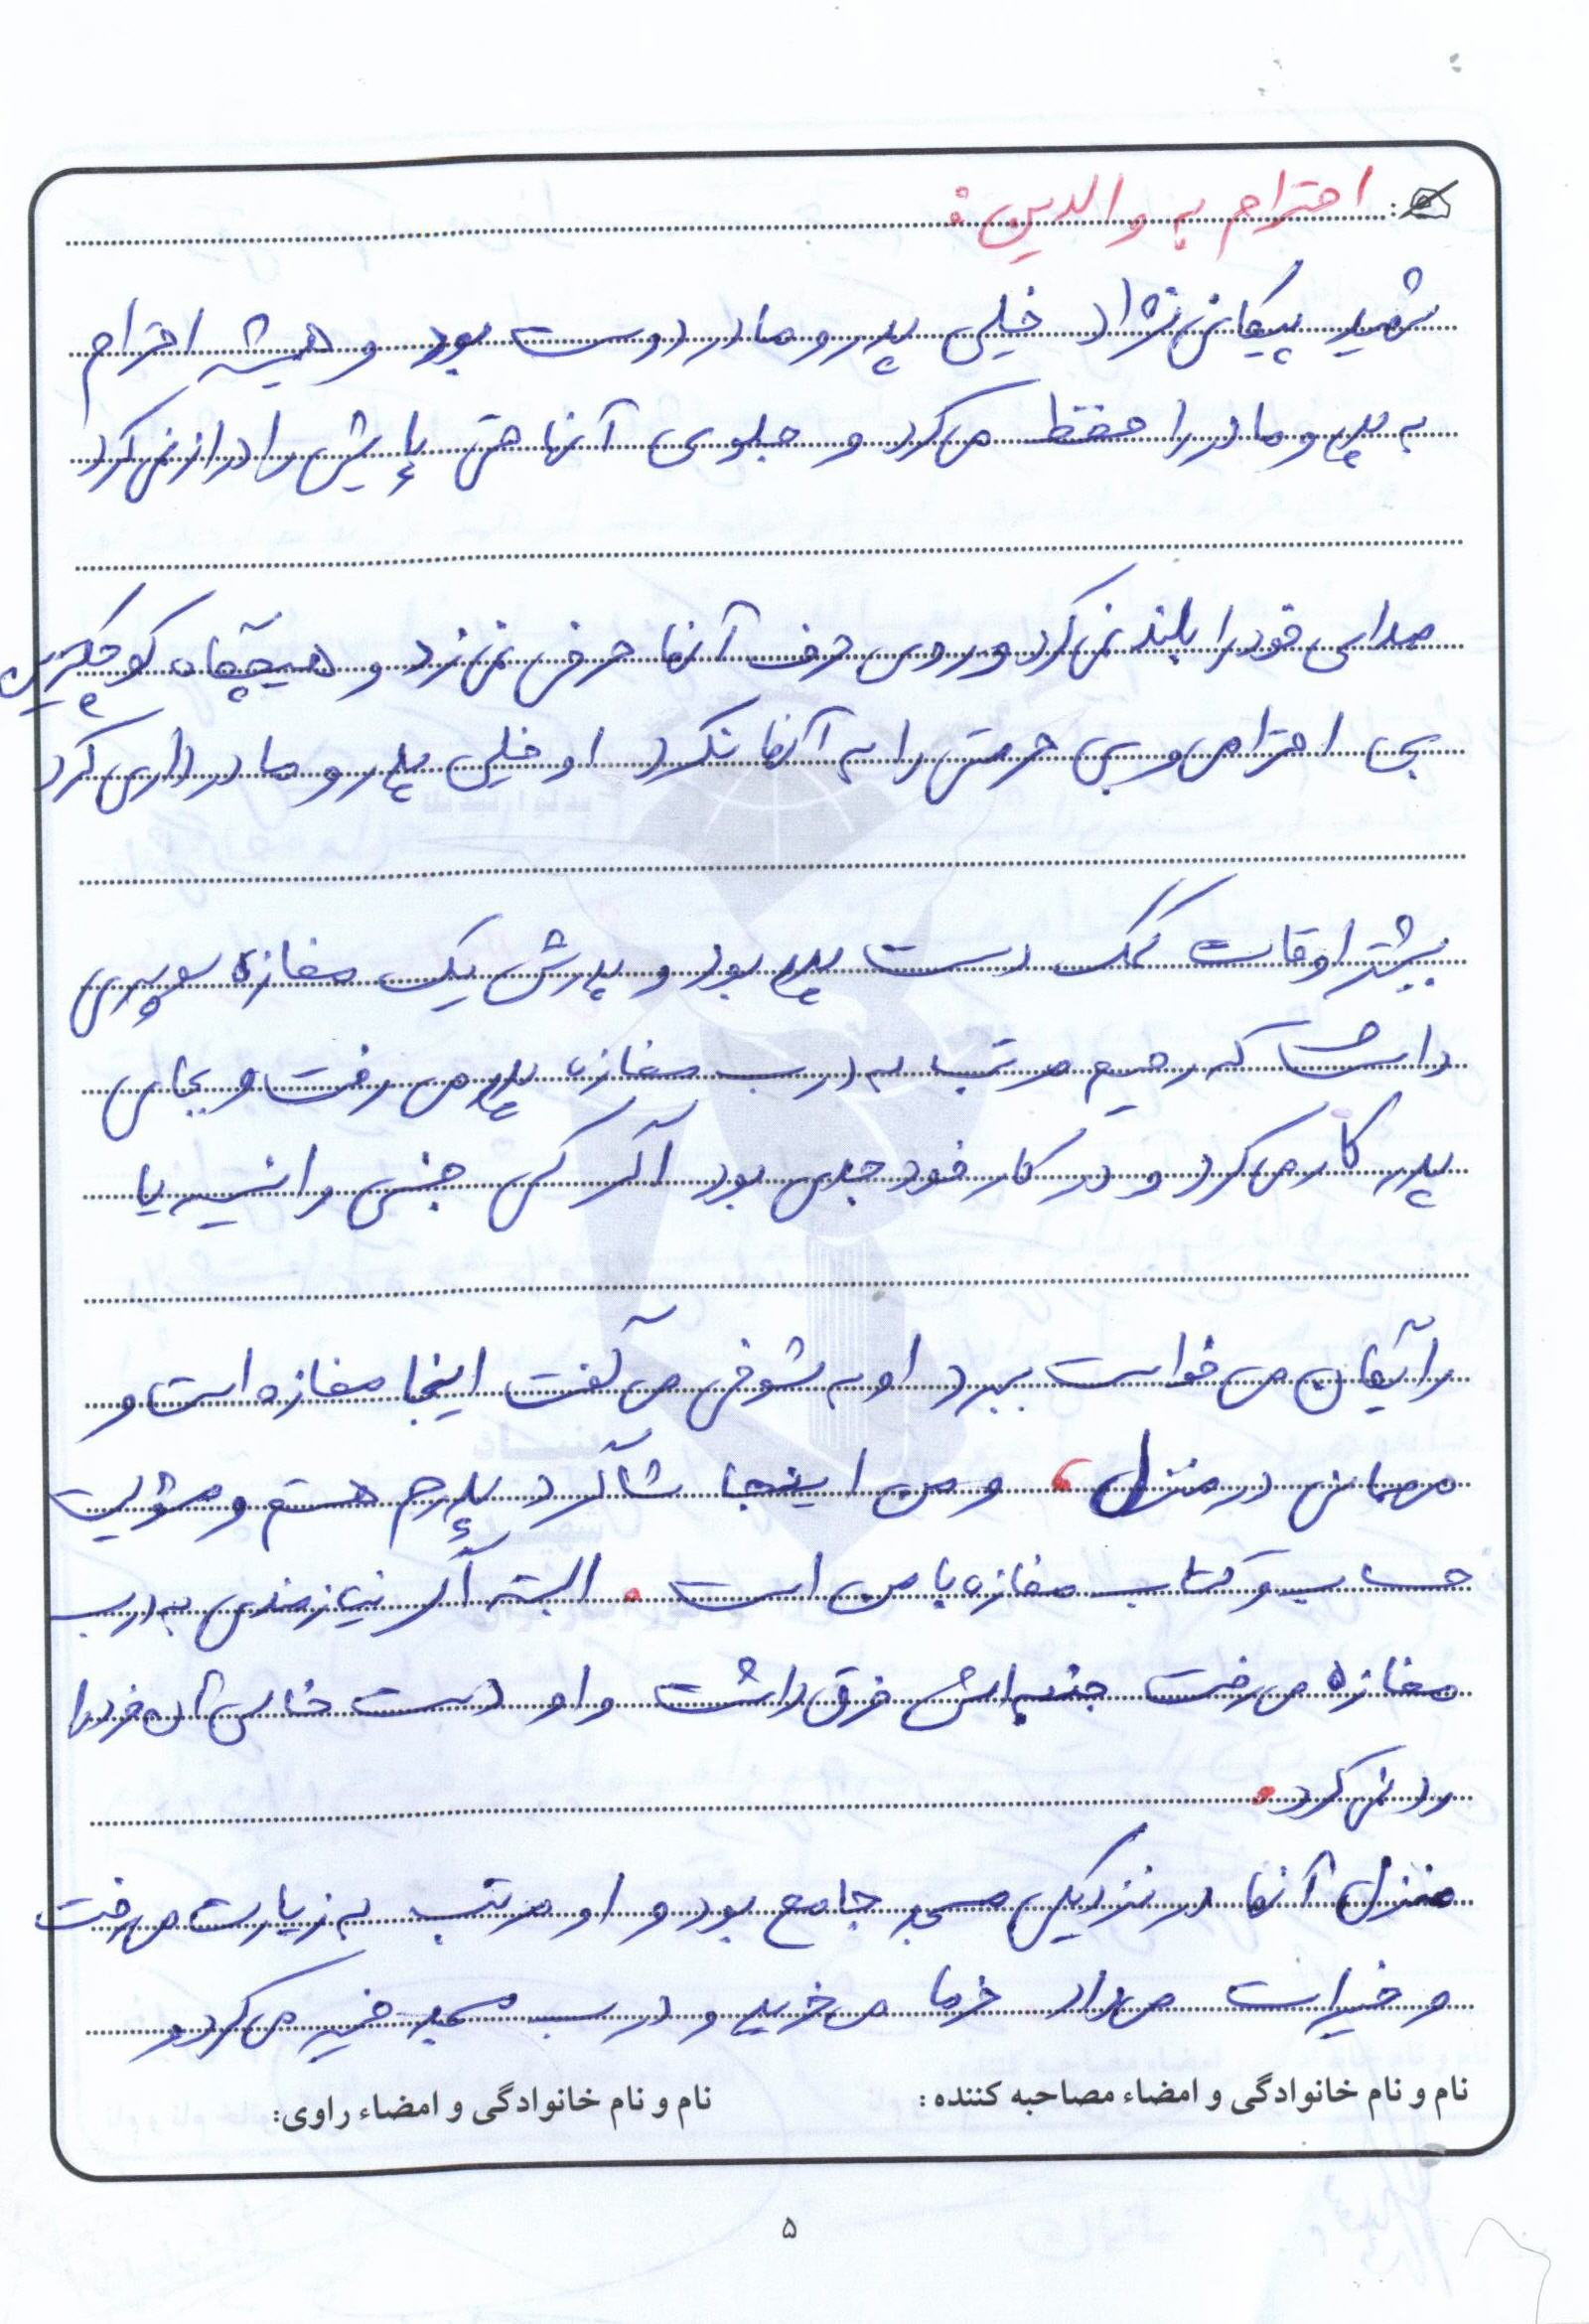 احترام به والدین:
شهید پیکانی نژاد خیلی پدر و مادر دوست بود و همیشه احترام
به پدر و مادر را حفظ می کرد و جلوی آنها حتی پایش را دراز نمی کرد
صدای خود را بلند نمی کرد و روی حرف آنها حرفی نمی زد و هیچگاه کوچکترین
بی احترامی و بی حرمتی را به آنها نکرد او خیلی پدر و مادر داری کرد
بیشتر اوقات کمک دست پدر بود و پدرش یک مغازه سوپری
داشت که رحیم مرتب به درب مغازه پدر می رفت و بجای
پدر کار می کرد و در کار خود جدی بود اگر کسی جنسی را نسیه یا
رایگان می خواست ببرد او به شوخی می گفت اینجا مغازه است و
مهمانی در منزل، و من اینجا شاگرد پدرم هستم و مسئولیت
حساب و کتاب مغازه با من است. البته اگر نیازمندی به درب
مغازه می رفت جنبه اش فرق داشت و او دست خالی آن فرد را
رد نمی کرد.
منزل آنها در نزدیکی مسجد جامع بود و او مرتب به زیارت می رفت
و خیرات می داد خرما می خرید و درب مسجد خیر می کرد و
نام و نام خانوادگی و امضاء مصاحبه کننده: نام و نام خانوادگی و امضاء راوی:
۵